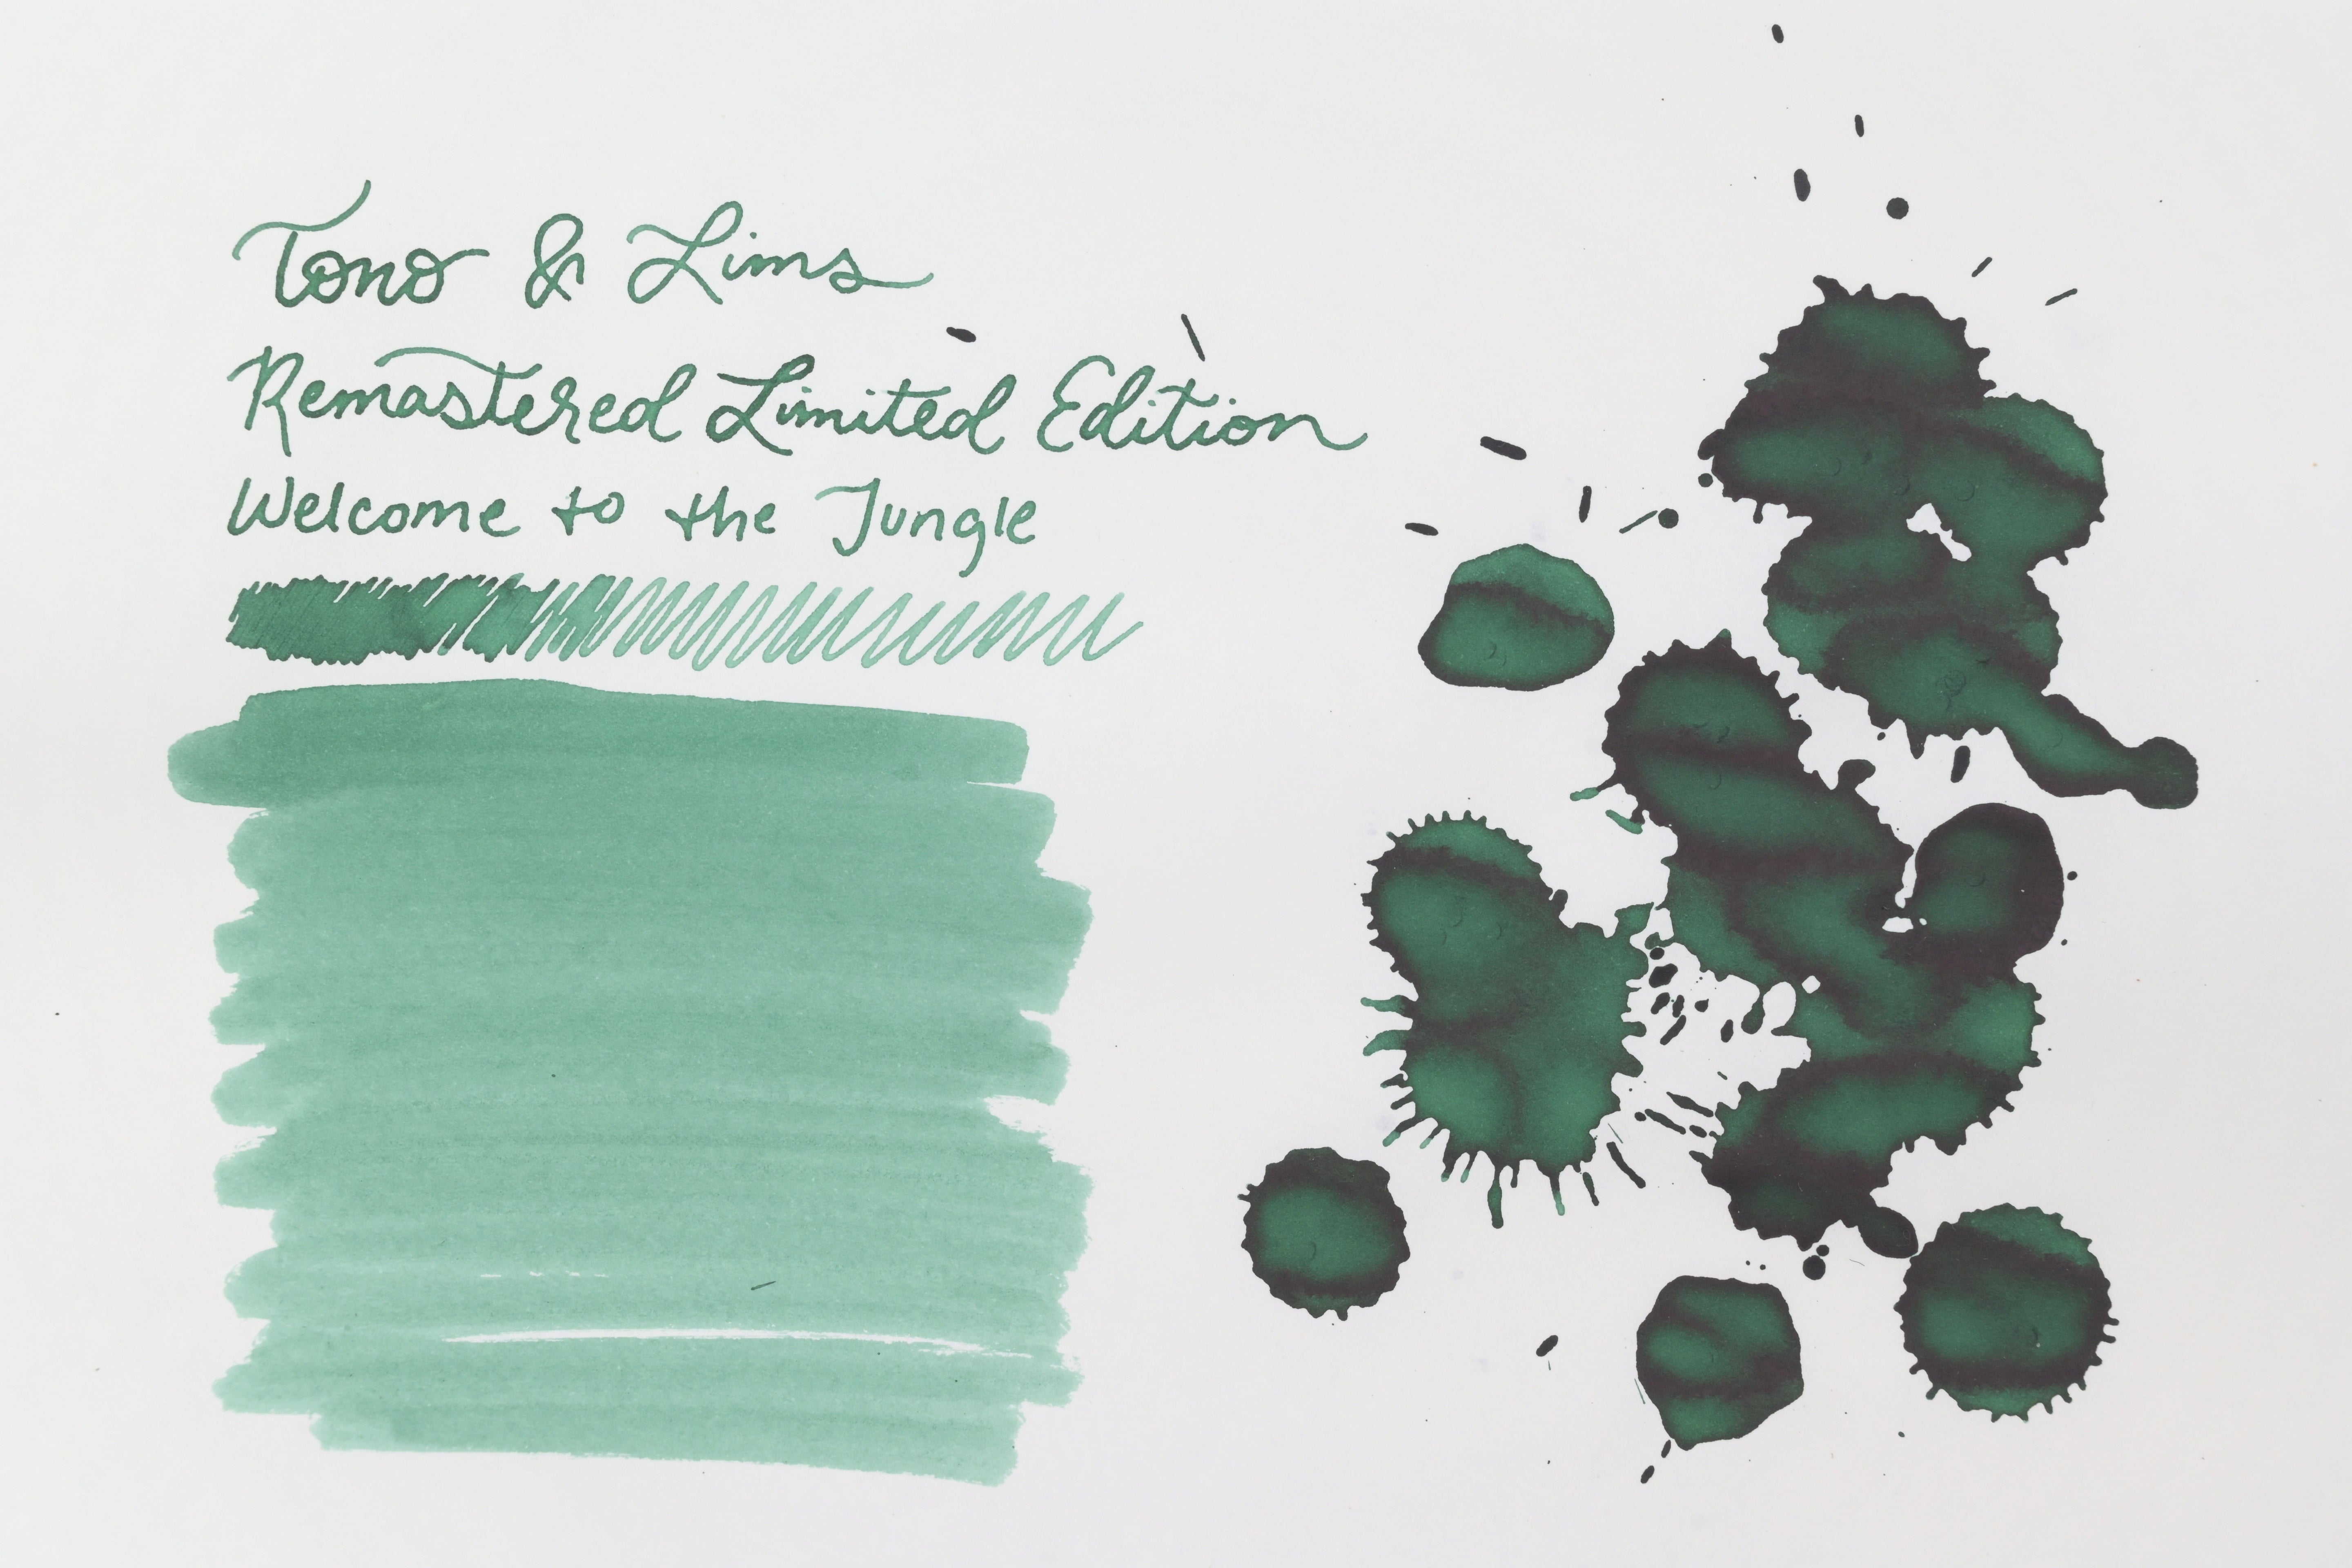 Tono & Lims
Remastered Limited Edition
Welcome to the Jungle